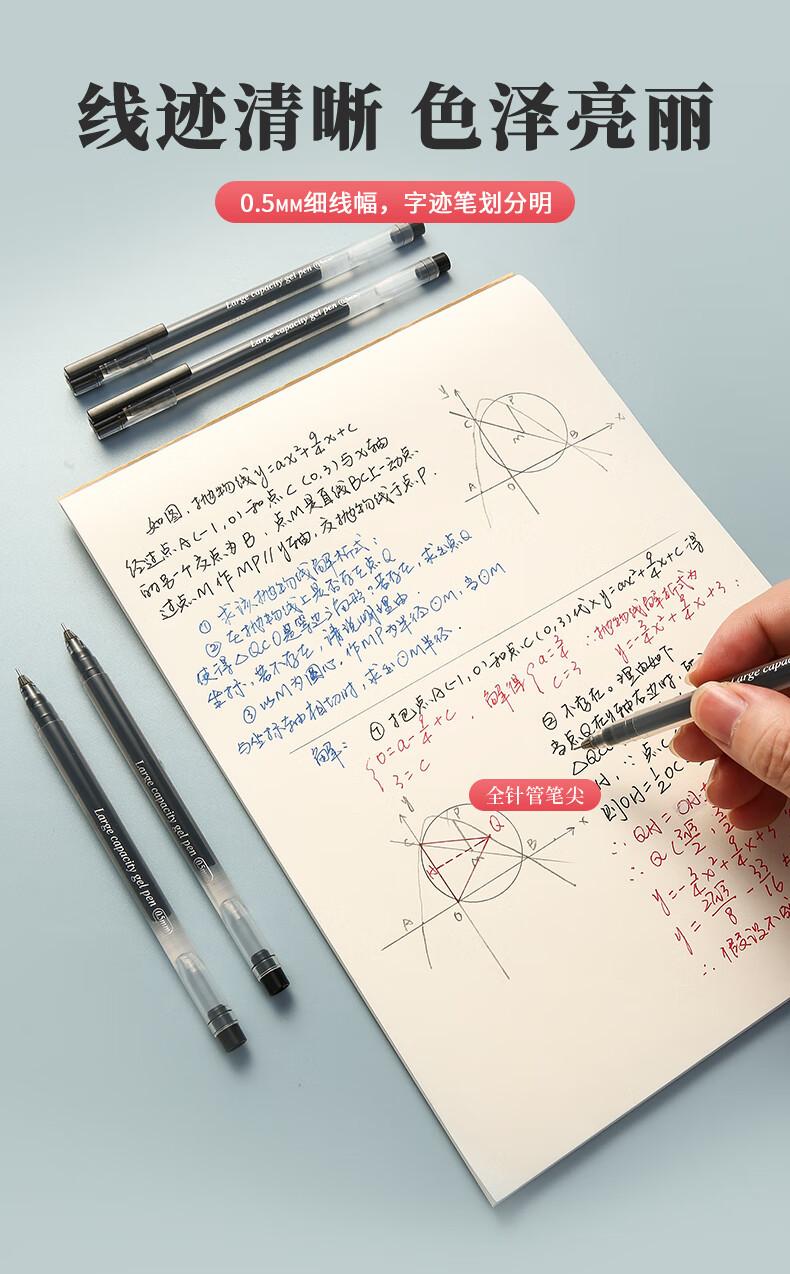 线迹清晰 色泽亮丽
0.5MM细线幅，字迹笔划分明
Large capacity gel pen 0.5mm
Large capacity gel pen 0.5mm
如图，抛物线y=ax²+9/4x+c
经过点A(-1,0)和点C(0,3)与x轴
的另一个交点为B，点M是直线BC上一动点，
过点M作MP//y轴，交抛物线于点P.
① 求该抛物线解析式；
② 在抛物线上是否存在点Q
使得△QCO是等边三角形？若存在，求出点Q
坐标，若不存在，请说明理由.
③ 以M为圆心，作MP为半径⊙M，当⊙M
与坐标轴相切时，求出⊙M半径.
y
P
C
M
B
x
A
O
解：
① 把点A(-1,0)和点C(0,3)代入y=ax²+9/4x+c得
{0=a-9/4+c
3=c
解得{a=-3/4
c=3
∴抛物线解析式为
y=-3/4x²+9/4x+3；
② 不存在。理由如下
当点Q在y轴右边时，
△QCO
点C
则OH=1/2OC
∴ QH=
∴ Q(3√3/2,
y=-3/4x²+9/4x+3
y=
8
16
∴ 假设不
全针管笔尖
y
P
Q
C
H
M
B
x
A
O
Large capa
Large capacity gel pen 0.5mm
Large capacity gel pen 0.5mm